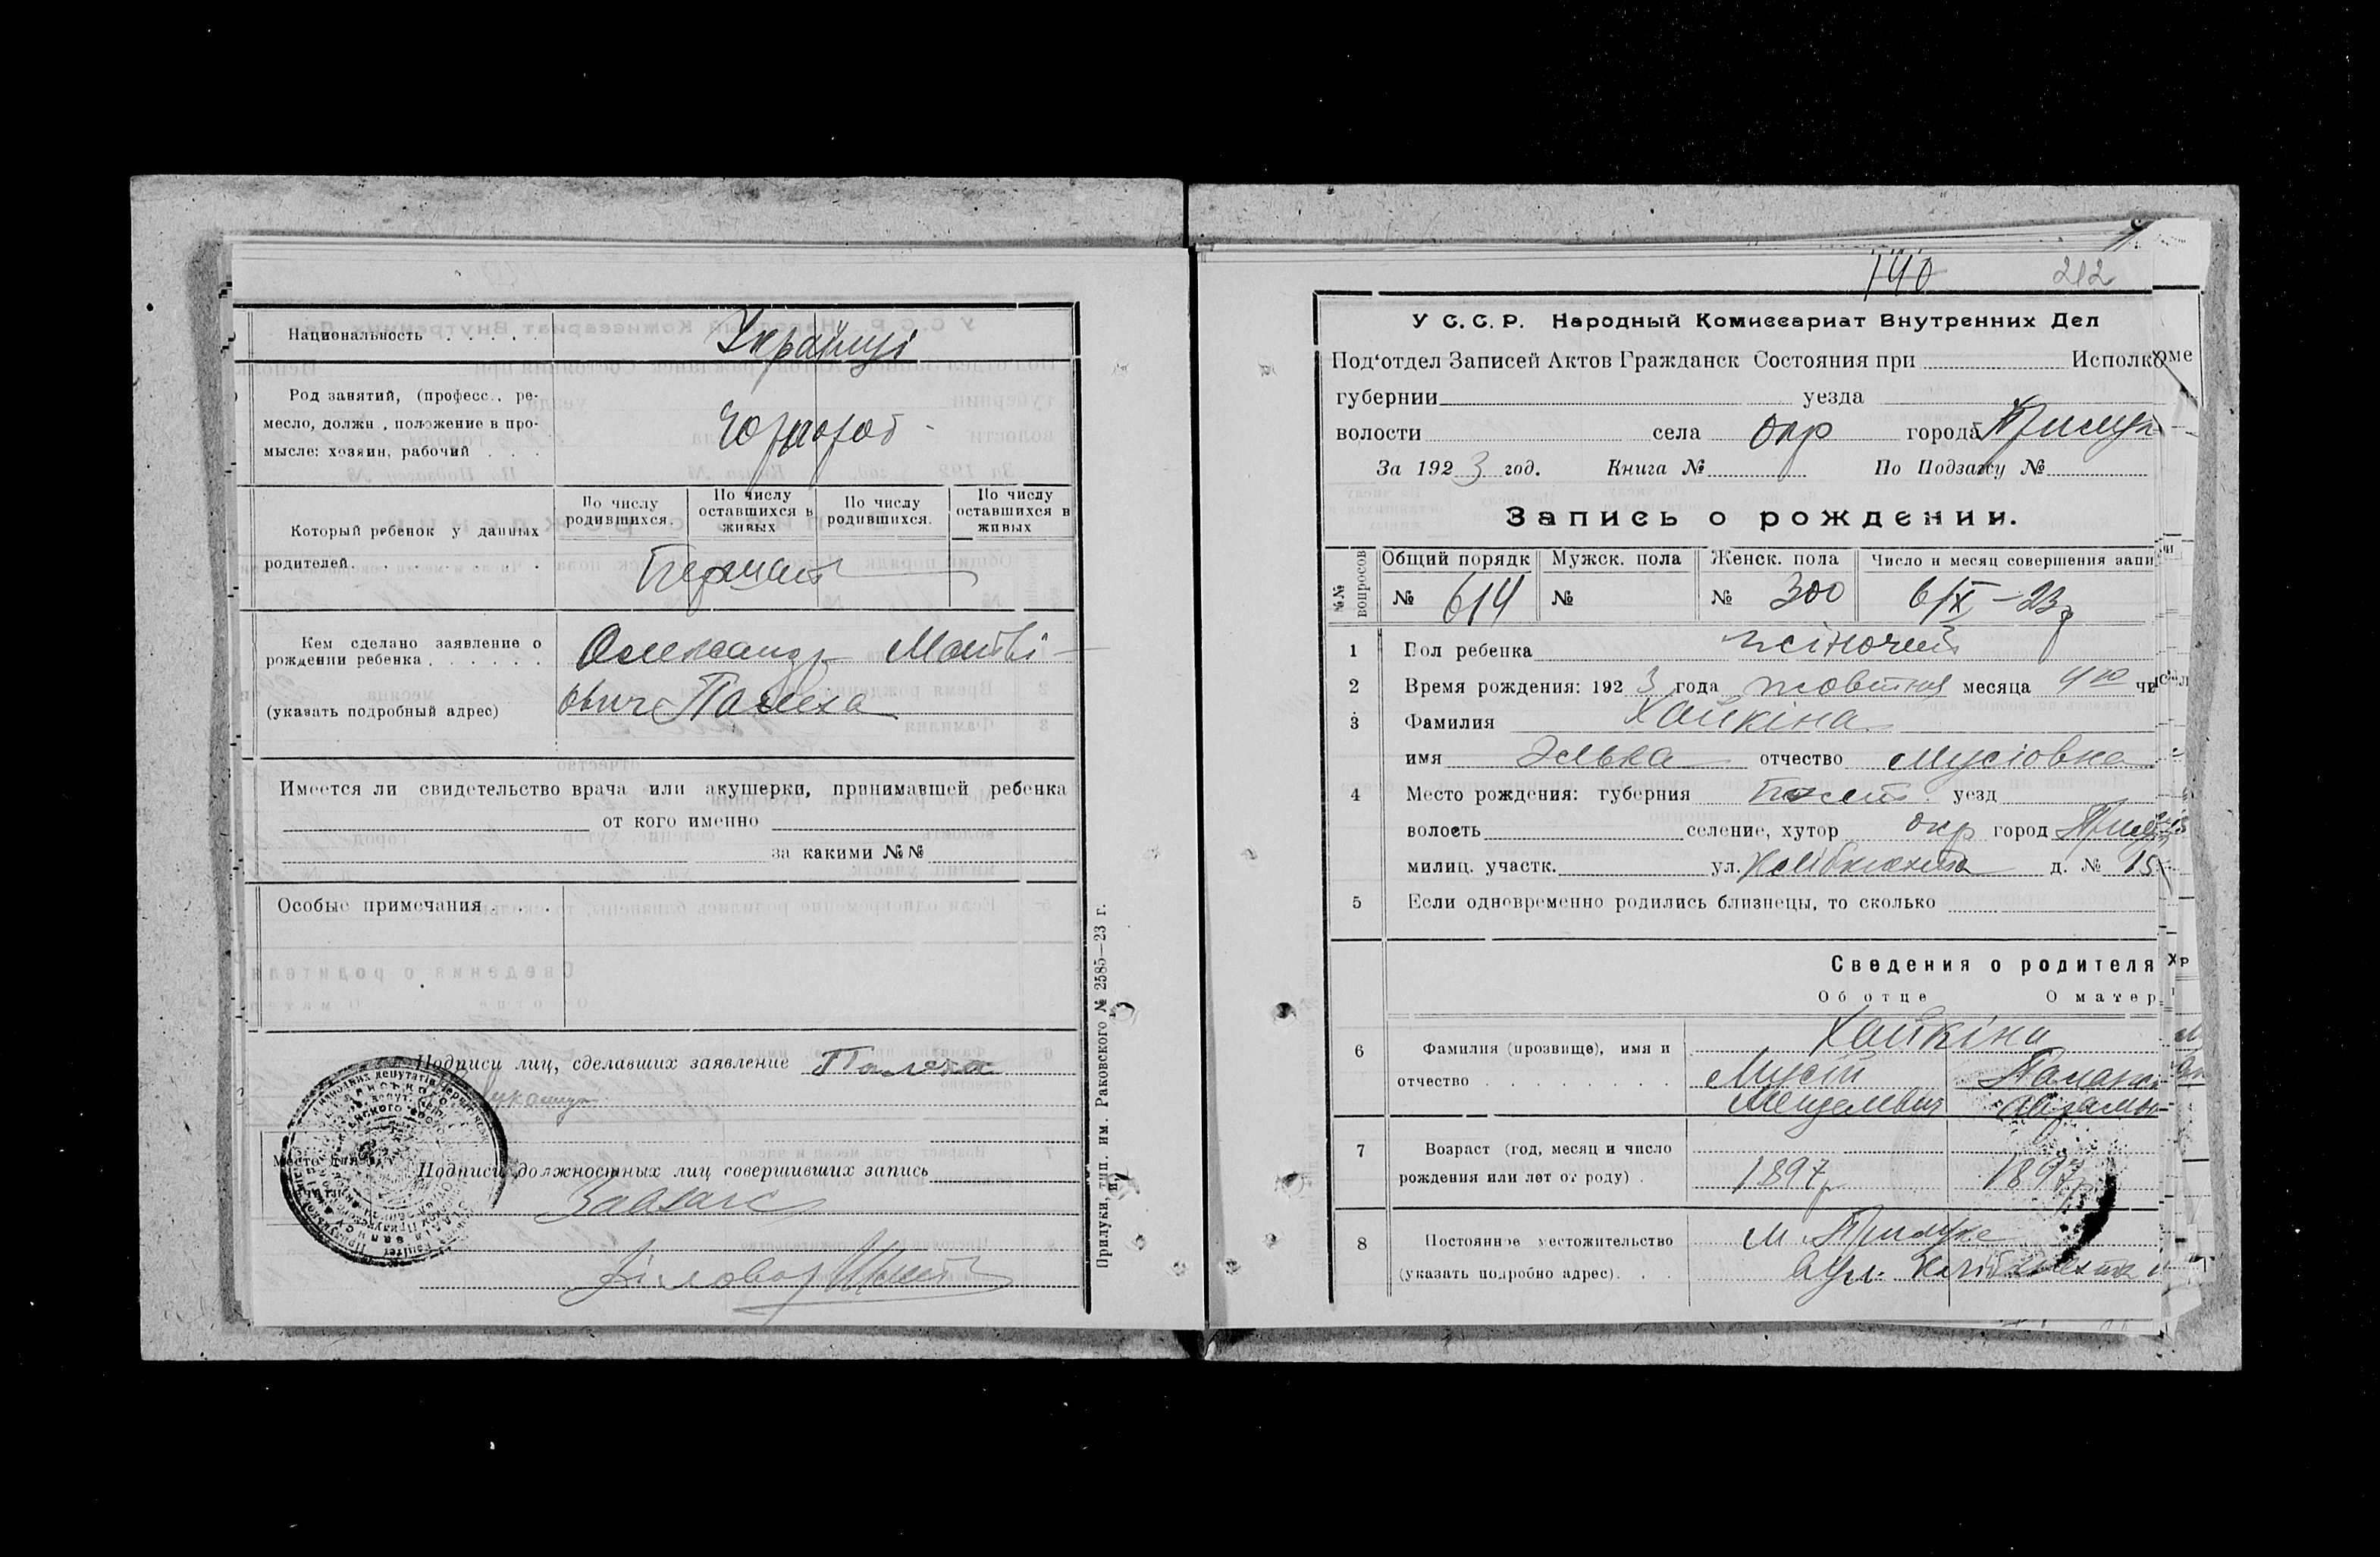 Национальность . . . . . Українці
Род занятий, (професс., ре-
месло, должн , положение в про-
мысле: хозяин, рабочий . . .
Который ребенок у данных
родителей. . . . . . . . .
По числу родившихся.
По числу оставшихся в живых
По числу родившихся.
По числу оставшихся в живых
Кем сделано заявление о
рождении ребенка . . . . . . Олександр Матві-
(указать подробный адрес) ович Палеха
Имеется ли свидетельство врача или акушерки, принимавшей ребенка
от кого именно
за какими №№
Особые примечания . . .
Подписи лиц, сделавших заявление Палеха
Место
Подписи должностных лиц совершивших запись
Завзагс
Діловод
Прилуки, тип. им. Раковского № 2585—23 г.
140 212
У С. С. Р. Народный Комиссариат Внутренних Дел
Под‘отдел Записей Актов Гражданск Состояния при Исполко
губернии уезда
волости села окр города Прилук
За 1923 год. Книга № По Подзагсу №
Запись о рождении.
№№ вопросов
Общий порядк Мужск. пола Женск. пола Число и месяц совершения запи
№ 614 № № 300 6/X—23р
1 Пол ребенка жіночий
2 Время рождения: 1923 года жовтня месяца 4го чи
3 Фамилия Хайкіна
имя Элька отчество Мусіовна
4 Место рождения: губерния Полт. уезд
волость селение, хутор окр город Прилуки
милиц. участк. ул. д. № 15
5 Если одновременно родились близнецы, то сколько
Сведения о родителя
Об отце О матер
6 Фамилия (прозвище), имя и Хайкіни
отчество . . . . . . . Мусій
Менделевич
7 Возраст (год, месяц и число
рождения или лет от роду) . 1897р 1897р
8 Постоянное местожительство м. Прилуке
(указать подробно адрес). . . вул.